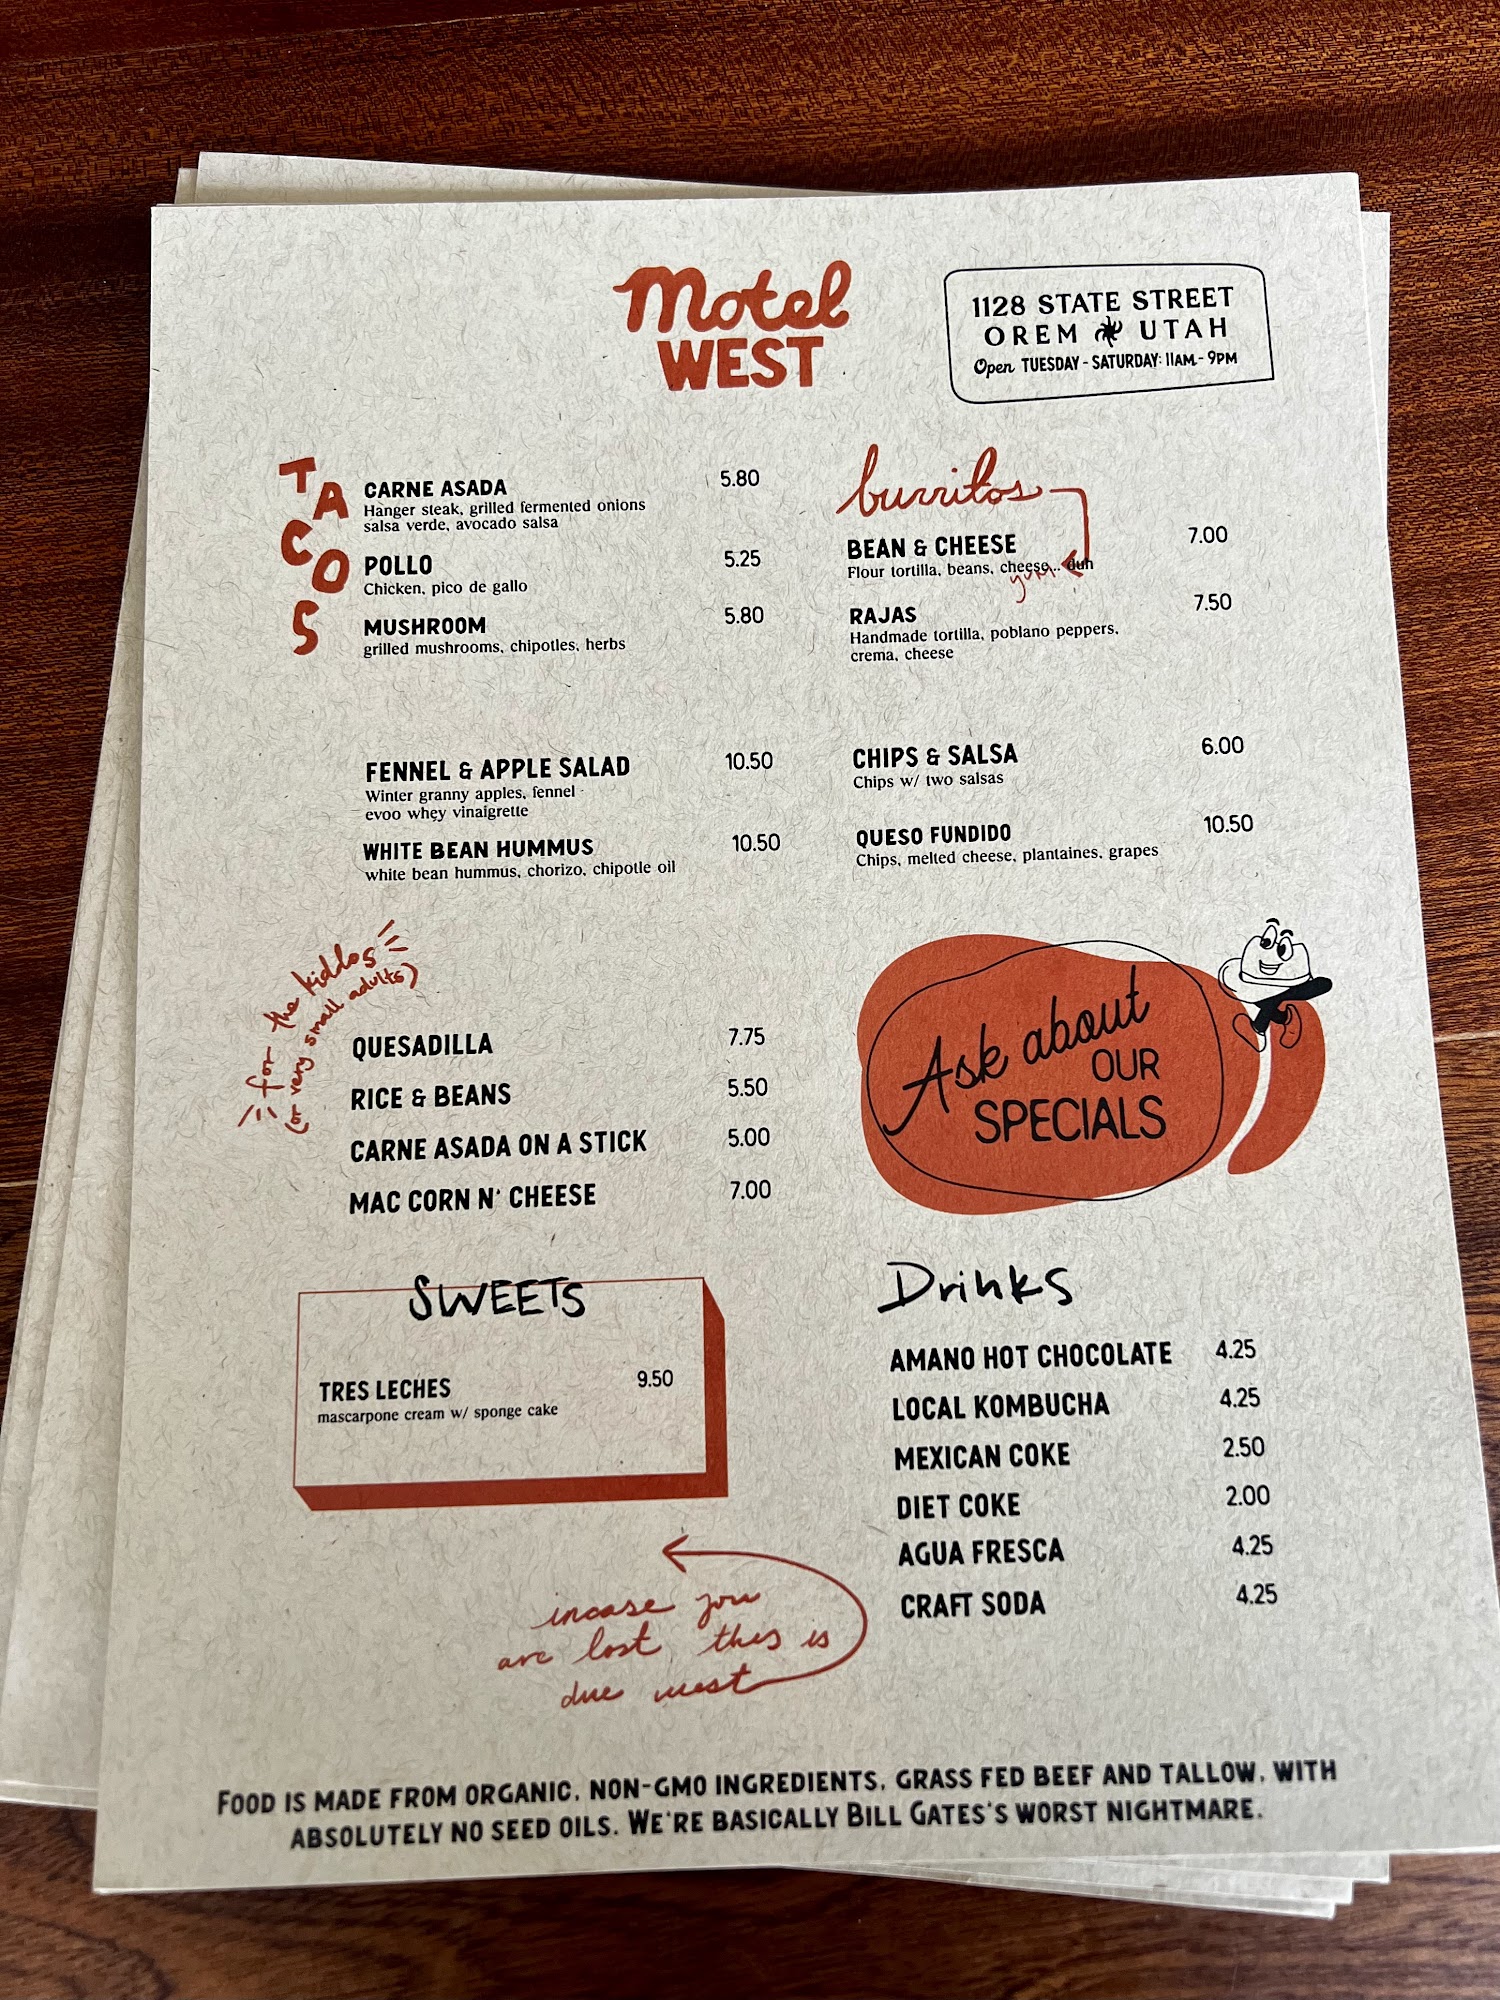 Motel
WEST
1128 STATE STREET
OREM UTAH
Open TUESDAY - SATURDAY: 11AM - 9PM
TACOS
CARNE ASADA 5.80
Hanger steak, grilled fermented onions
salsa verde, avocado salsa
POLLO 5.25
Chicken, pico de gallo
MUSHROOM 5.80
grilled mushrooms, chipotles, herbs
burritos
BEAN & CHEESE 7.00
Flour tortilla, beans, cheese... duh
yum
RAJAS 7.50
Handmade tortilla, poblano peppers,
crema, cheese
FENNEL & APPLE SALAD 10.50
Winter granny apples, fennel
evoo whey vinaigrette
WHITE BEAN HUMMUS 10.50
white bean hummus, chorizo, chipotle oil
CHIPS & SALSA 6.00
Chips w/ two salsas
QUESO FUNDIDO 10.50
Chips, melted cheese, plantaines, grapes
for the kiddos
(or very small adults)
QUESADILLA 7.75
RICE & BEANS 5.50
CARNE ASADA ON A STICK 5.00
MAC CORN N' CHEESE 7.00
Ask about
OUR
SPECIALS
SWEETS
TRES LECHES 9.50
mascarpone cream w/ sponge cake
Drinks
AMANO HOT CHOCOLATE 4.25
LOCAL KOMBUCHA 4.25
MEXICAN COKE 2.50
DIET COKE 2.00
AGUA FRESCA 4.25
CRAFT SODA 4.25
incase you
are lost, this is
due west
FOOD IS MADE FROM ORGANIC, NON-GMO INGREDIENTS, GRASS FED BEEF AND TALLOW, WITH
ABSOLUTELY NO SEED OILS. WE'RE BASICALLY BILL GATES'S WORST NIGHTMARE.